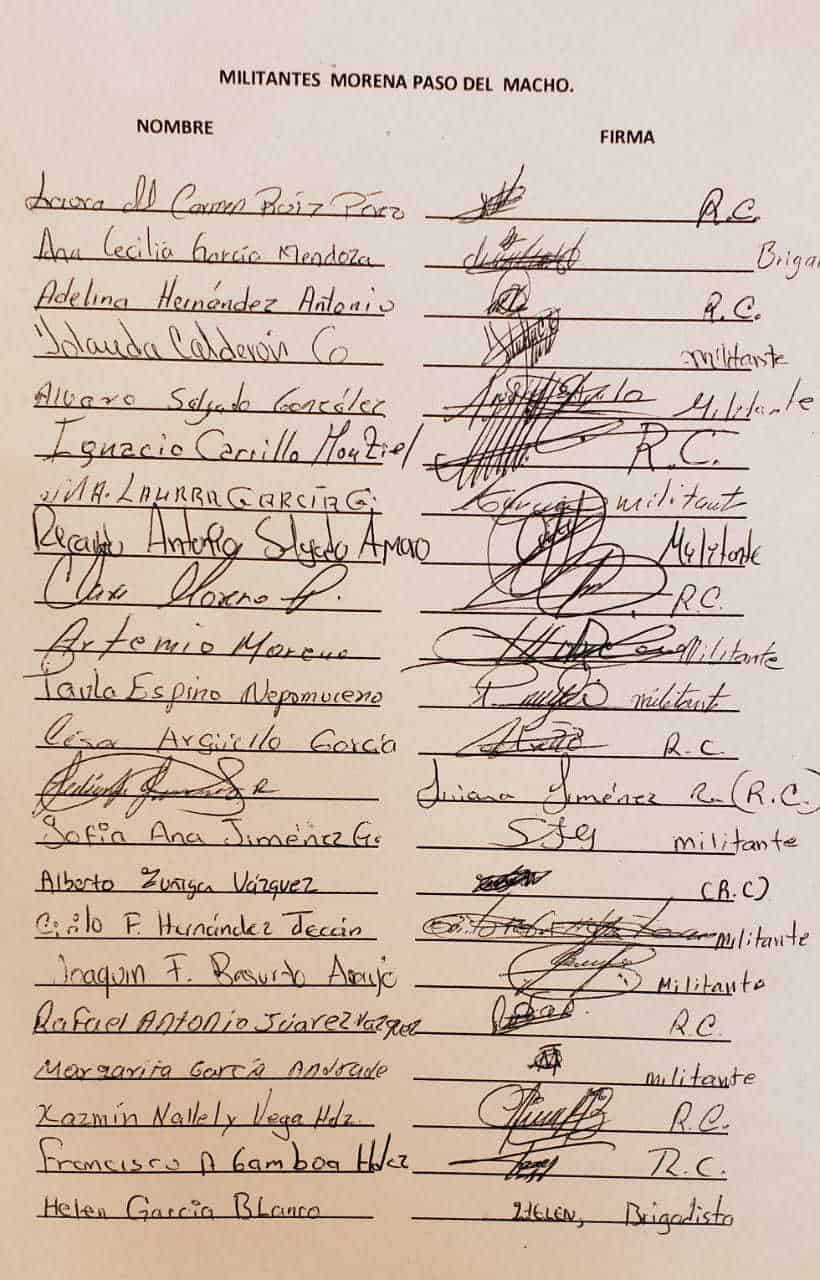 MILITANTES MORENA PASO DEL MACHO.
NOMBRE FIRMA
Laura del Carmen Ruíz Pérez R.C.
Ana Cecilia García Mendoza Briga
Adelina Hernández Antonio R.C.
Yolanda Calderón Co militante
Alvaro Salgado González Militante
Ignacio Carrillo Montiel R.C.
MA. LAURA GARCÍA G. García militant
Ricardo Antonio Salgado Amaro Militante
Clara Moreno R.C.
Artemio Moreno Militante
Paula Espino Nepomuceno militant
César Argüello García R.C.
Jiménez R (R.C.)
Sofía Ana Jiménez G. militante
Alberto Zuñiga Vázquez (R.C)
F. Hernández militante
Joaquin F. Basurto Araujo Militante
Rafael ANTONIO Juarez Vazquez R.C.
Margarita García Andrade militante
Xazmín Nallely Vega Hdz. R.C.
Francisco A Gamboa Hdez R.C.
Helen García Blanco HELEN, Brigadista